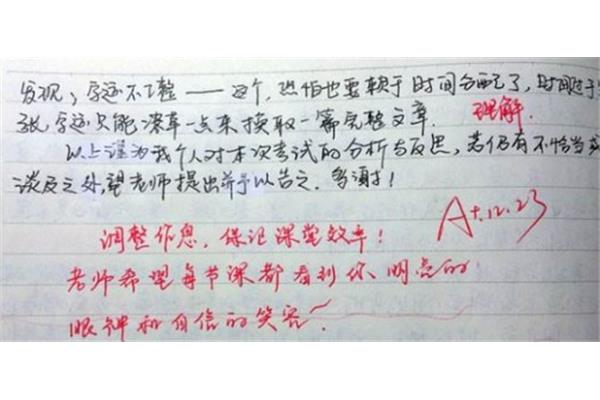 发现，字还不工整——这个，恐怕也要赖于时间分配了，时间过于紧
张，字迹只能潦草一点来换取一篇完整文章. 理解.
以上谨为我个人对本次考试的分析与反思，若仍有不恰当或
谈及之处，望老师提出并予以告之. 多谢！
A+.12.23
调整作息，保证课堂效率！
老师希望每节课都看到你明亮的
眼神和自信的笑容.